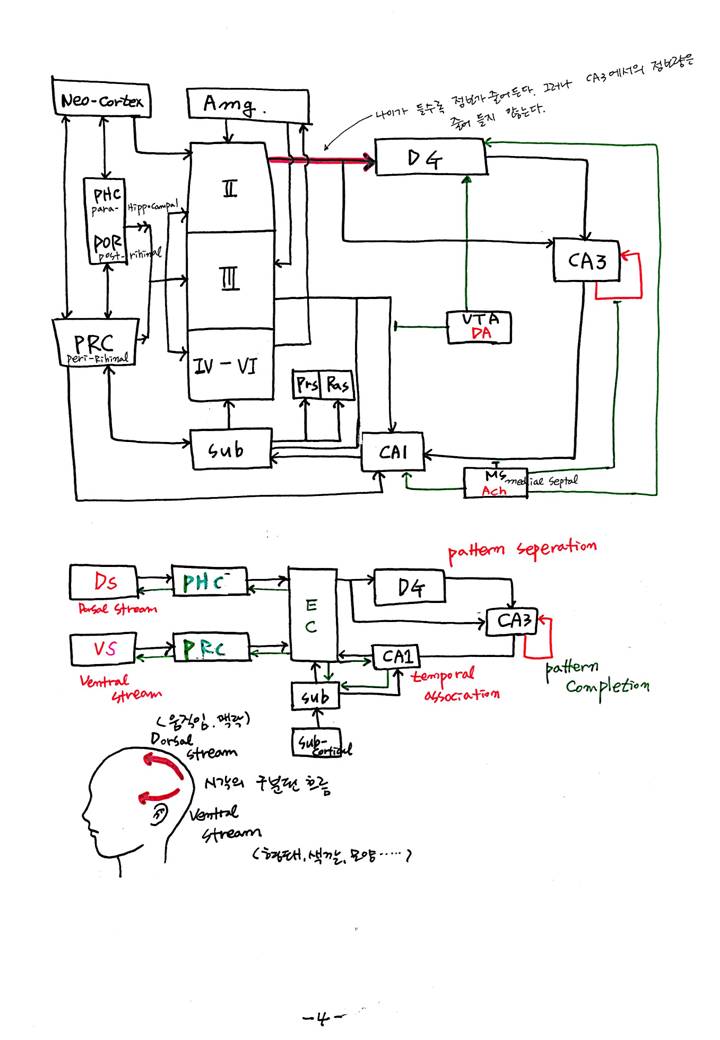 나이가 들수록 정보가 줄어든다. 그러나 CA3에서의 정보량은
줄어 들지 않는다.
Neo-cortex
Amg.
II
DG
PHC
para-Hippocampal
POR
post-rihinal
III
CA3
VTA
DA
PRC
peri-Rihinal
IV-VI
Prs
Pas
Sub
CA1
MS medial septal
Ach
pattern seperation
DS
PHC
EC
DG
Dorsal stream
CA3
VS
PRC
CA1
Ventral
stream
temporal
association
pattern
completion
Sub
Sub-
cortical
(움직임, 맥락)
Dorsal
stream
시각의 구분된 흐름
Ventral
stream
(형태, 색깔, 모양.....)
-4-